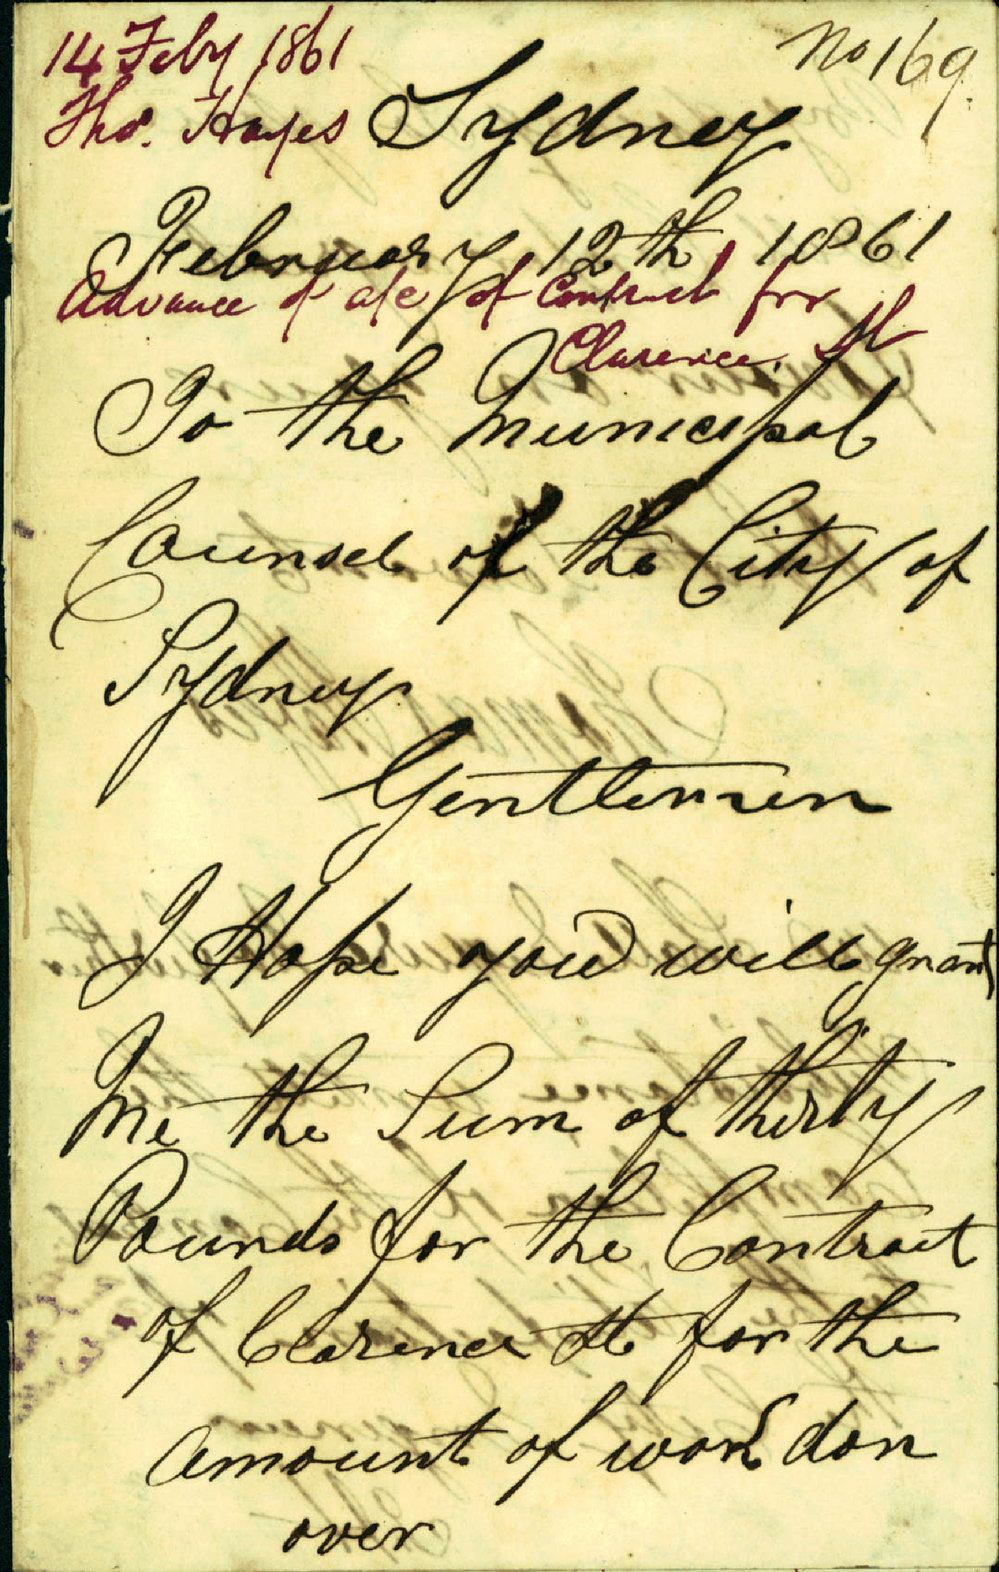 14 Feby 1861
No 169.
Thos. Hayes
Sydney
February 12th 1861
Advance of a/c of Contract for
Clarence St
To the Municipal
Counsel of the City of
Sydney
Gentlemen
I Hope you will grant
Me the Sum of thirty
Pounds for the Contract
of Clarence St for the
amount of work don
over